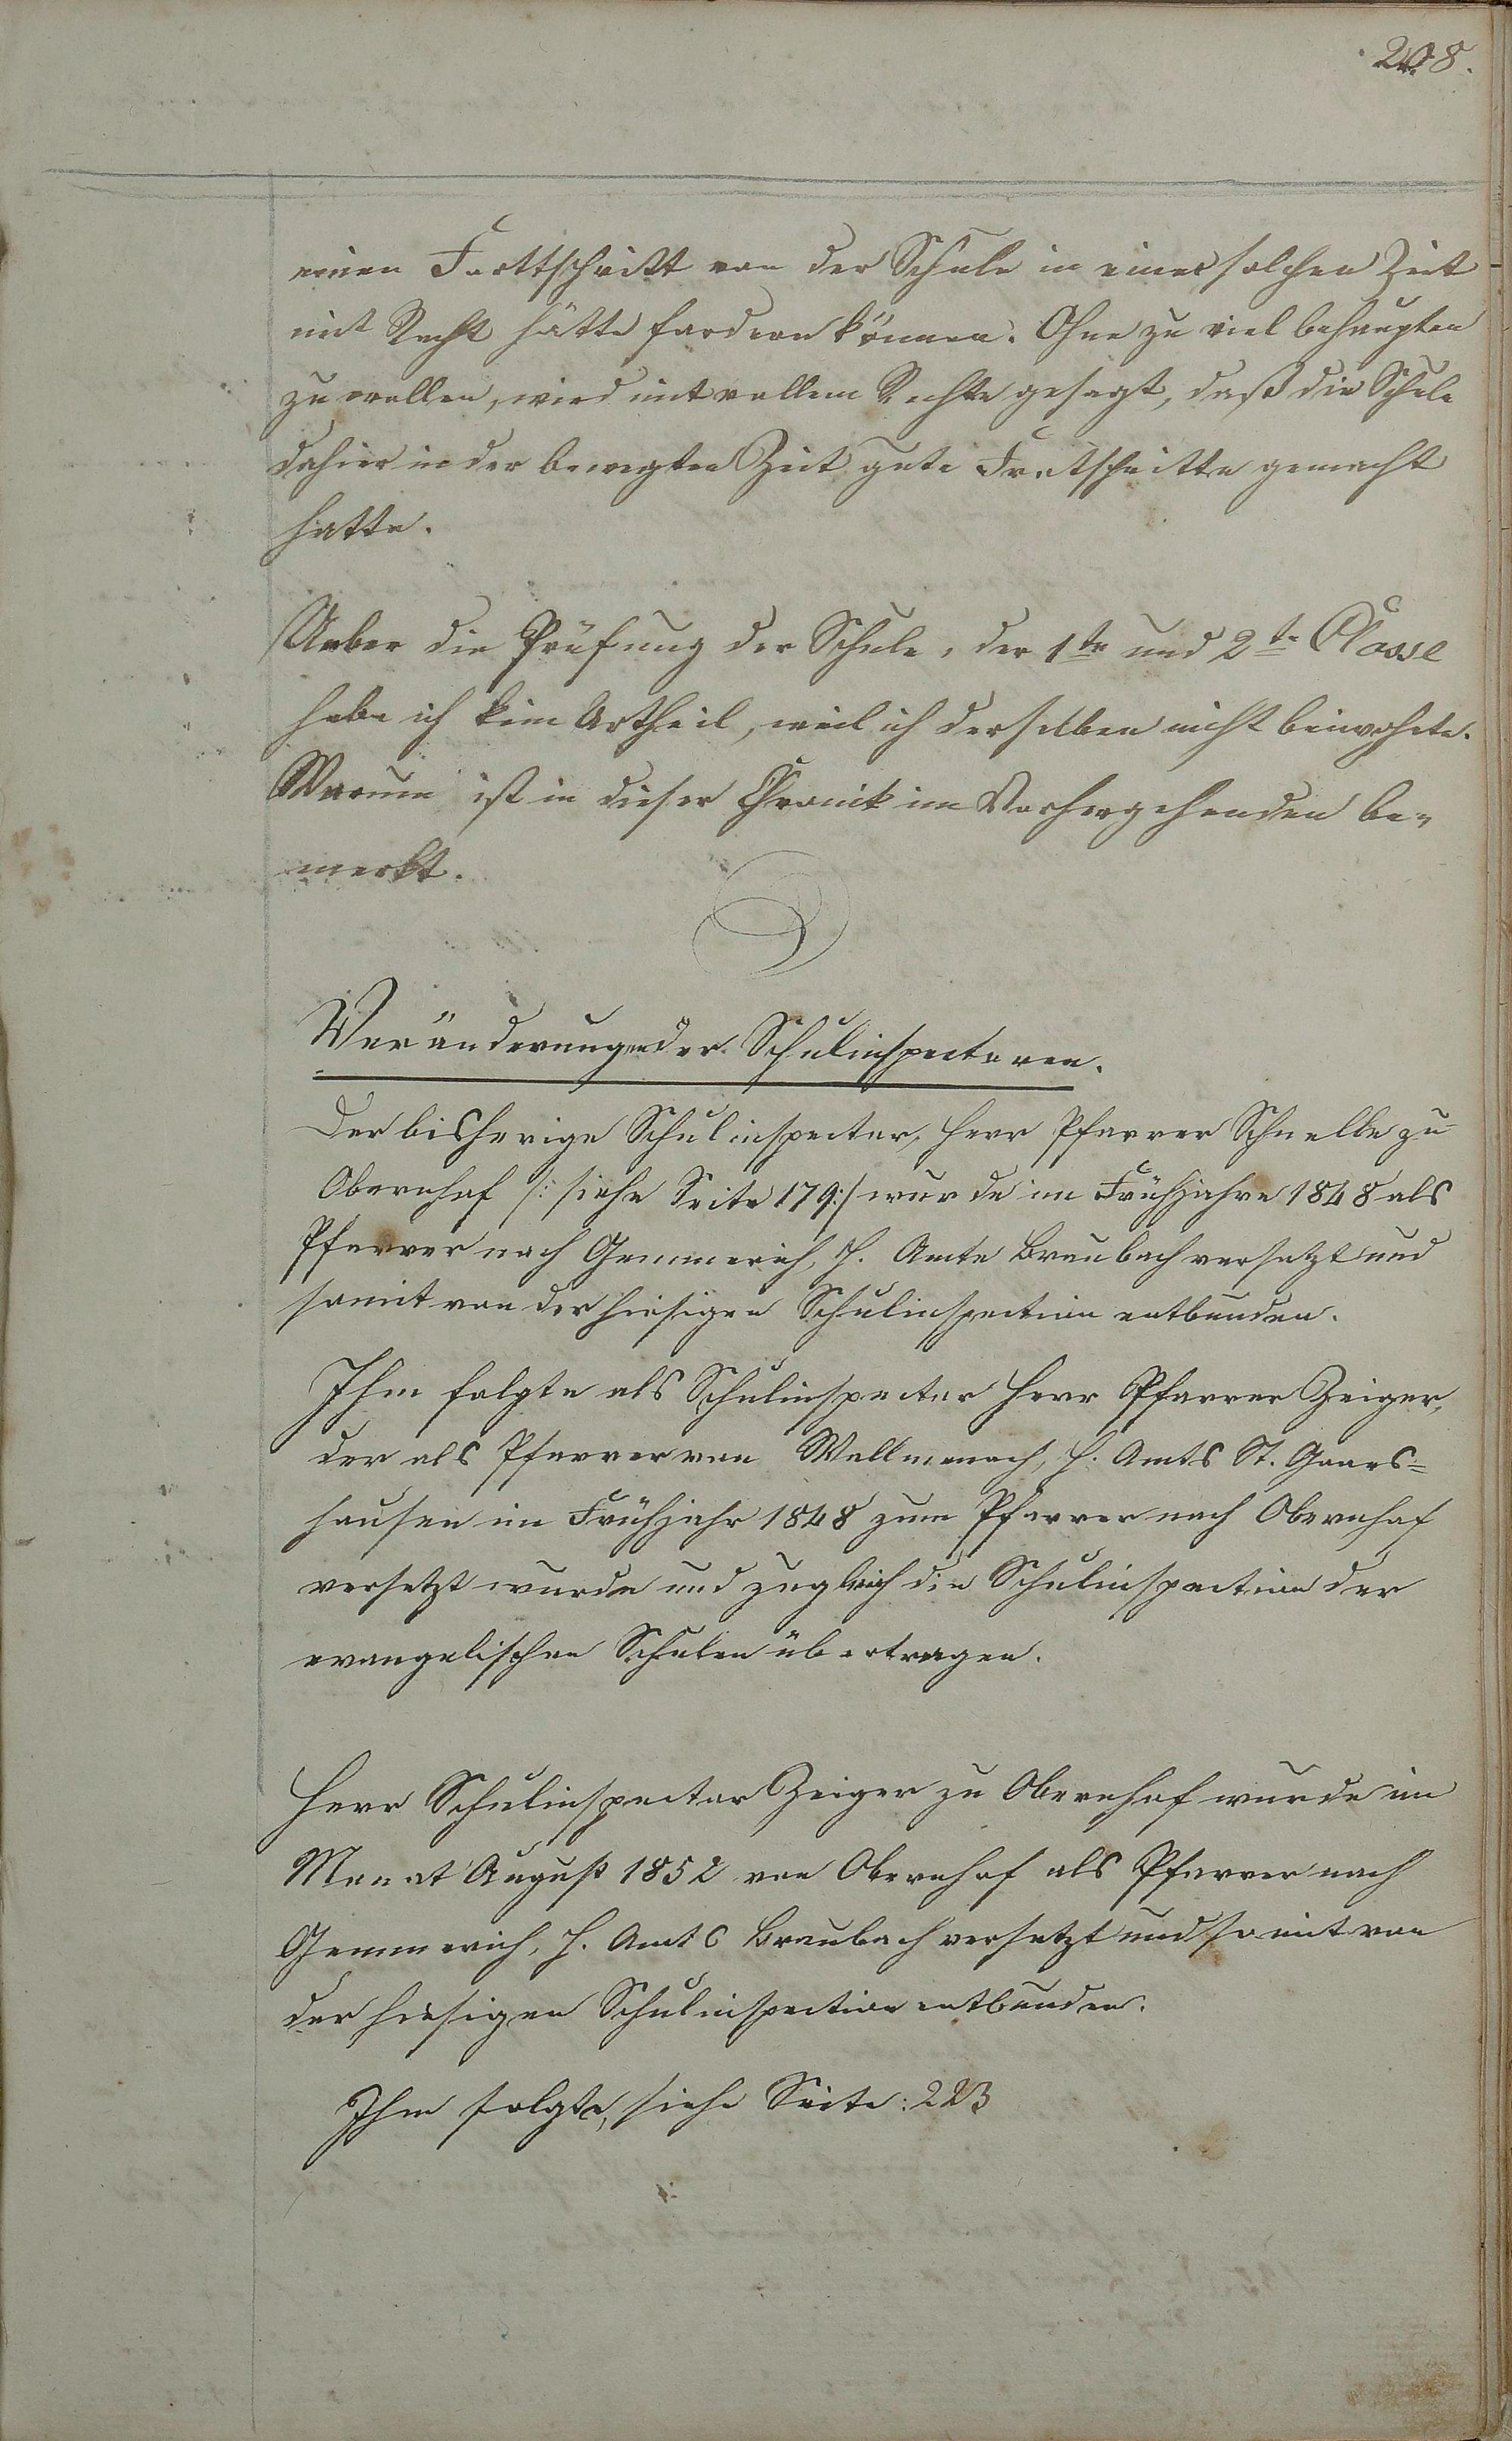 208.
einen Forttschritt von der Schule in einer solchen Zeit
mit Recht hätte fordern können. Ohne zu viel behaupten
zu wollen, wird mit vollem Rechte gesagt, daß die Schule
dahier in der bewegten Zeit gute Fortschritte gemacht
hatte.
Ueber die Prüfung der Schule, der 1te und 2te Classe
habe ich kein Urtheil, weil ich derselben nicht beiwohnte.
Warum ist in dieser Chronik im Vorhergehenden be-
merkt.
Veränderung der Schulinspectoren.
Der bisherige Schulinspector, Herr Pfarrer Schnelle zu
Obernhof /: siehe Seite 179:/ wurde im Frühjahre 1848 als
Pfarrer nach Gemmerich, H. Amte Braubach versetzt und
somit von der hiesigen Schulinspection entbunden.
Ihm folgte als Schulinspector Herr Pfarrer Zeiger,
der als Pfarrer von Wellmenach, H. Amts St. Goars=
hausen im Frühjahr 1848 zum Pfarrer nach Obernhof
versetzt wurde und zugleich die Schulinspection der
evangelischen Schulen übertragen.
Herr Schulinspector Zeiger zu Obernhof wurde im
Monat August 1852 von Obernhof als Pfarrer nach
Gemmerich, H. Amts Braubach versetzt und somit von
der hiesigen Schulinspection entbunden.
Ihm folgte, siehe Seite: 223